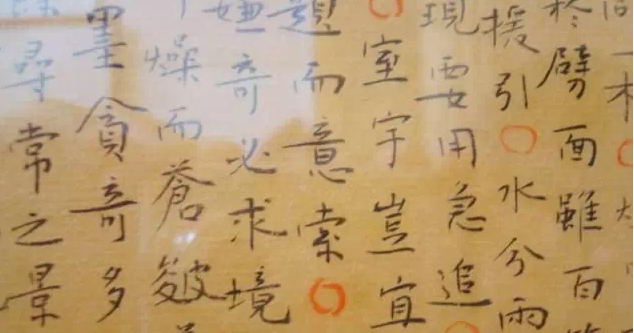 一木〇
於劈面雖百
援引〇水分雨
現要用急追
〇室宇豈宜
趣而意索〇
嫌奇必求境
燥而蒼皴
墨貪奇多
尋常之景